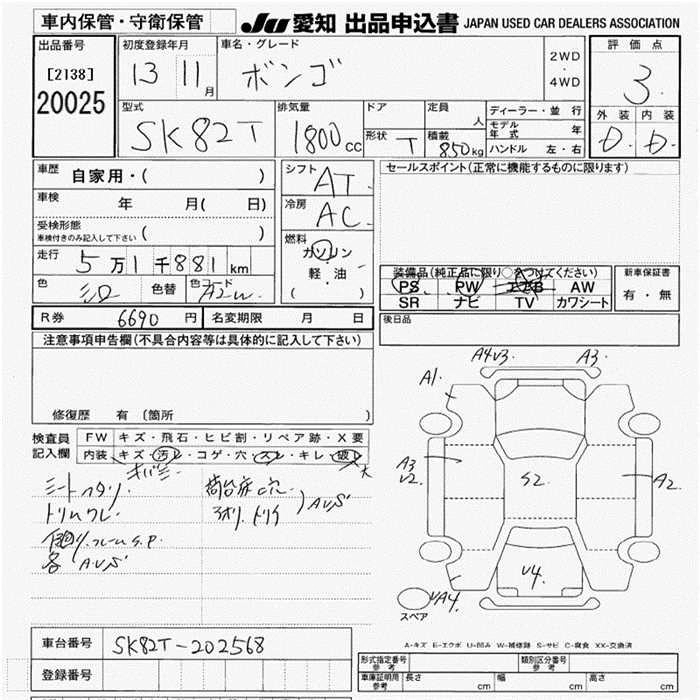 車内保管・守衛保管
JU 愛知 出品申込書 JAPAN USED CAR DEALERS ASSOCIATION
出品番号
[2138]
20025
初度登録年月
13 11 月
車名・グレード
ボンゴ
2WD
・
4WD
評価点
3
外装 内装
D D
型式
SK82T
排気量
1800 cc
ドア
形状 T
定員
人
積載 850 kg
ディーラー・並行
モデル年式 年
ハンドル 左・右
車歴
自家用・( )
車検
年 月( 日)
受検形態
車検付きのみ記入して下さい ( )
走行
5万1千881km
色 シロ 色替 色コード A2W
シフト AT
冷房 AC
燃料
ガソリン
・
軽油
( )
セールスポイント(正常に機能するものに限ります)
装備品(純正品に限り○をつけてください)
PS PW エアB AW
SR ナビ TV カワシート
新車保証書
有・無
R券 6690 円 名変期限 月 日
後日品
注意事項申告欄(不具合内容等は具体的に記入して下さい)
修復歴 有 (箇所 )
検査員記入欄
FW キズ・飛石・ヒビ割・リペア跡・X要
内装 キズ・汚レ・コゲ・穴・スレ・キレ・破レ 大
シートヘタリ
トリムワレ
各 AUS
AUS
A4V3 A3
A1
A3
V2
S2
A2
V4
VA4
スペア
A-キズ E-エクボ U-凹み W-補修跡 S-サビ C-腐食 XX-交換済
車台番号 SK82T-202568
登録番号
形式指定番号 参考 類別区分番号 参考
車庫証明用 参考 長さ cm 幅 cm 高さ cm